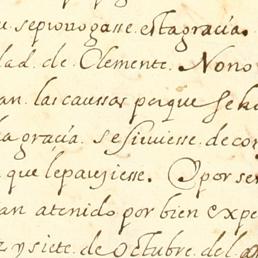 se prorogasse. esta gracia.
dad. de Clemente. Nono
an. las caussas. porque se ha
la gracia. se siruiesse. de con
que le pareziesse. O por ser
an atenido por bien expe
z y siete. de octubre. del a